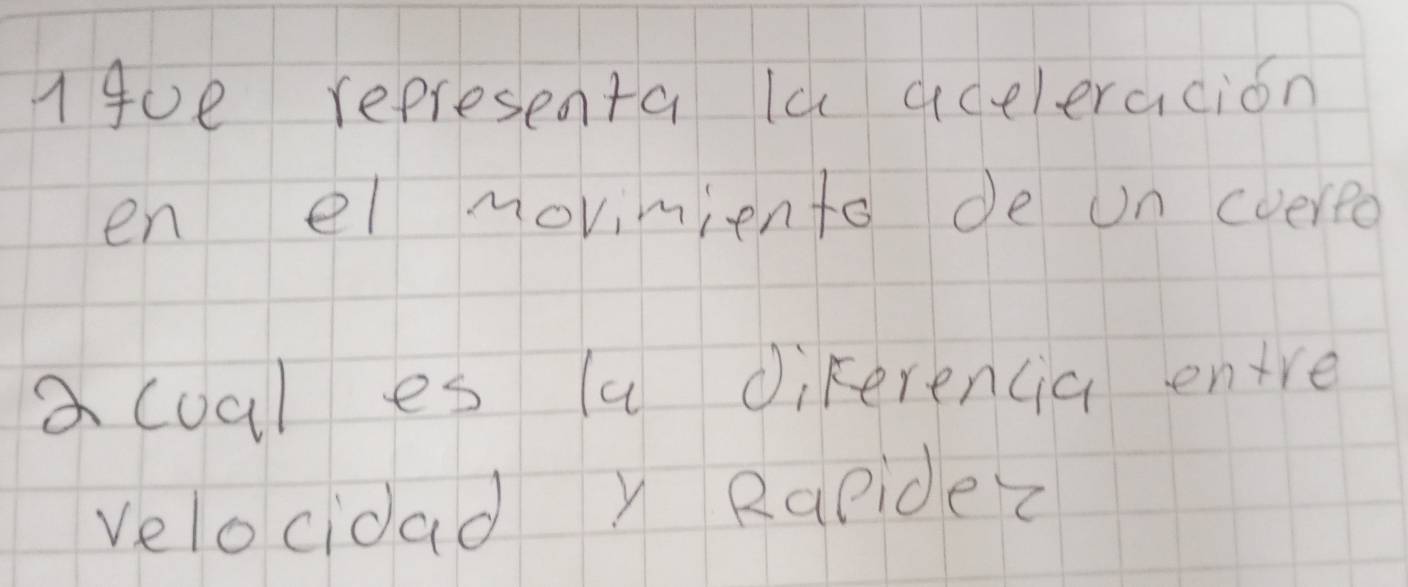 1 que representa la aceleración
en el movimiento de un cuerpo
2 cual es la diferencia entre
velocidad y Rapidez